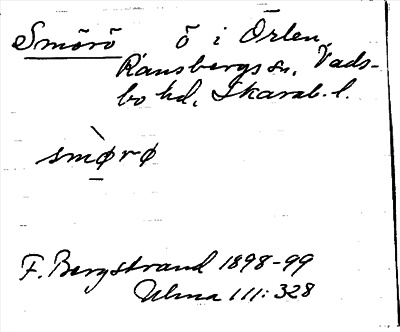 Smörö ö i Örlen,
Ransbergs sn, Vads-
bo hd, Skarab. l.
smø̀rø
F. Bergstrand 1898-99
Ulma 111:328